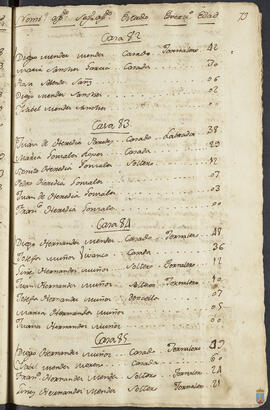 Nomᵉ apᵈᵒ Segᵈᵒ apᵈᵒ Estado Exerzº Edad 73
Casa 82
Diego Mendez Mendez Casado Jornalero 42
Maria Sanchez Garcia Casada 30
Rosa Mendez Sanz 06
Diego Mendez Sanchez 02
Isabel Mendez Sanchez
Casa 83
Juan de Heredia Paredes Casado Labrador 38
Maria Gonzales Lopez Casada 29
Benito Heredia Gonzales Soltero 12
Pedro Heredia Gonzales 07
Juan de Heredia Gonzales 03
Franᶜᵒ Heredia Gonzales
Casa 84
Diego Hernandez Mendez Casado Jornalero 48
Josefa Muñoz Casada 36
Ginés Hernandez Muñoz Soltero Jornalero
Juan Hernandez Muñoz Soltero
Josefa Hernandez Muñoz Doncella 07
Maria Hernandez Muñoz 05
Juana Hernandez Muñoz
Casa 85
Diego Hernandez Muñoz Casado Jornalero
Isabel Mendez Moreno Casada
Franᶜᵒ Hernandez Mendez Soltero Jornalero 24
Gines Hernandez Mendez Soltero Jornalero 21